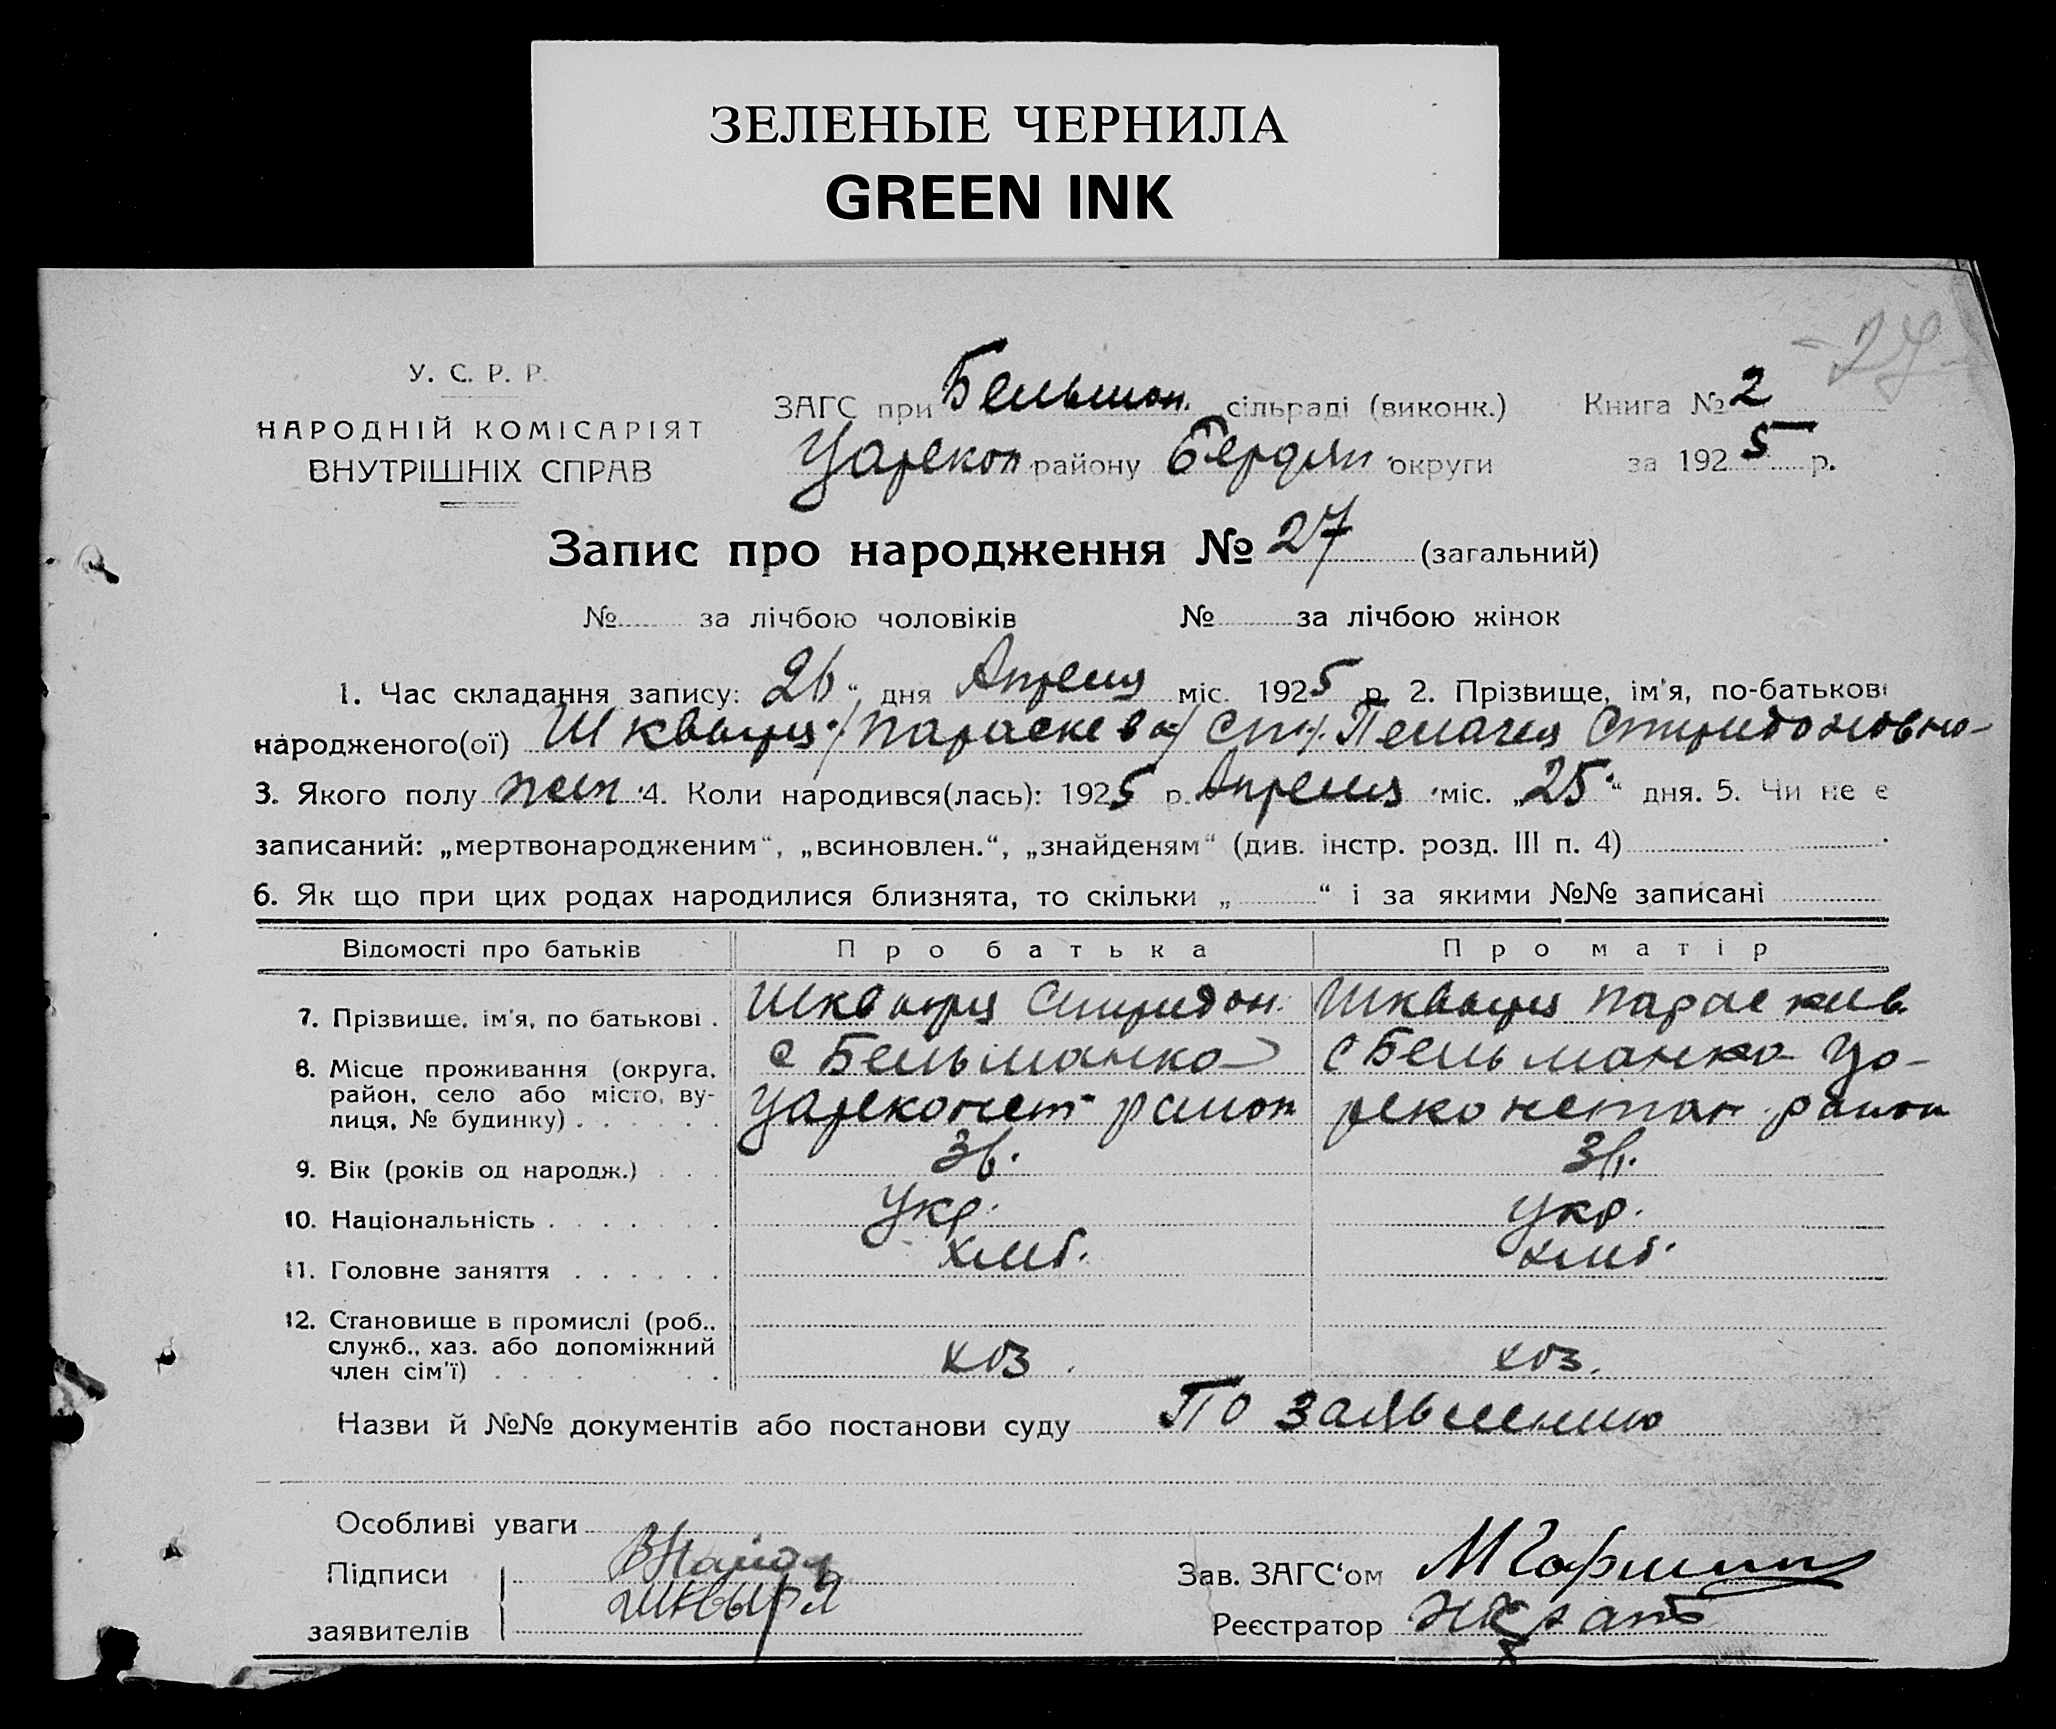 ЗЕЛЕНЫЕ ЧЕРНИЛА
GREEN INK
27
У. С. Р. Р.
НАРОДНІЙ КОМІСАРІЯТ
ВНУТРІШНІХ СПРАВ
ЗАГС при Бельман. сільраді (виконк.)
Царекон району Бердян округи
Книга № 2
за 1925 р.
Запис про народження № 27 (загальний)
№ за лічбою чоловіків № за лічбою жінок
1. Час складання запису: 26 “ дня Апреля міс. 1925 р. 2. Прізвище, ім'я, по-батькові
народженого(ої) Шквыря Параскева Пелагея Спиридоновна
3. Якого полу жен. 4. Коли народився(лась): 1925 р. Апреля міс. „25“ дня. 5. Чи не є
записаний: „мертвонародженим“, „всиновлен.“, „знайденям“ (див. інстр. розд. III п. 4)
6. Як що при цих родах народилися близнята, то скільки „ “ і за якими №№ записані
Відомості про батьків Про батька Про матір
7. Прізвище, ім'я, по батькові . Шквыря Спиридон. Шквыря Параскив.
8. Місце проживання (округа, район, село або місто, вулиця, № будинку) . . . . . .
с Бельманка Цареконст район
с Бельманка Цареконстан. район
9. Вік (років од народж.) . . . 36. 36.
10. Національність . . . . . . . Укр. Укр.
11. Головне заняття . . . . . . хлиб. хлиб.
12. Становище в промислі (роб., служб., хаз. або допоміжний член сім'ї) . . . . . . . . хоз. хоз.
Назви й №№ документів або постанови суду По заявлению
Особливі уваги
Підписи
заявителів
Шквыря
Зав. ЗАГС‘ом
Реєстратор